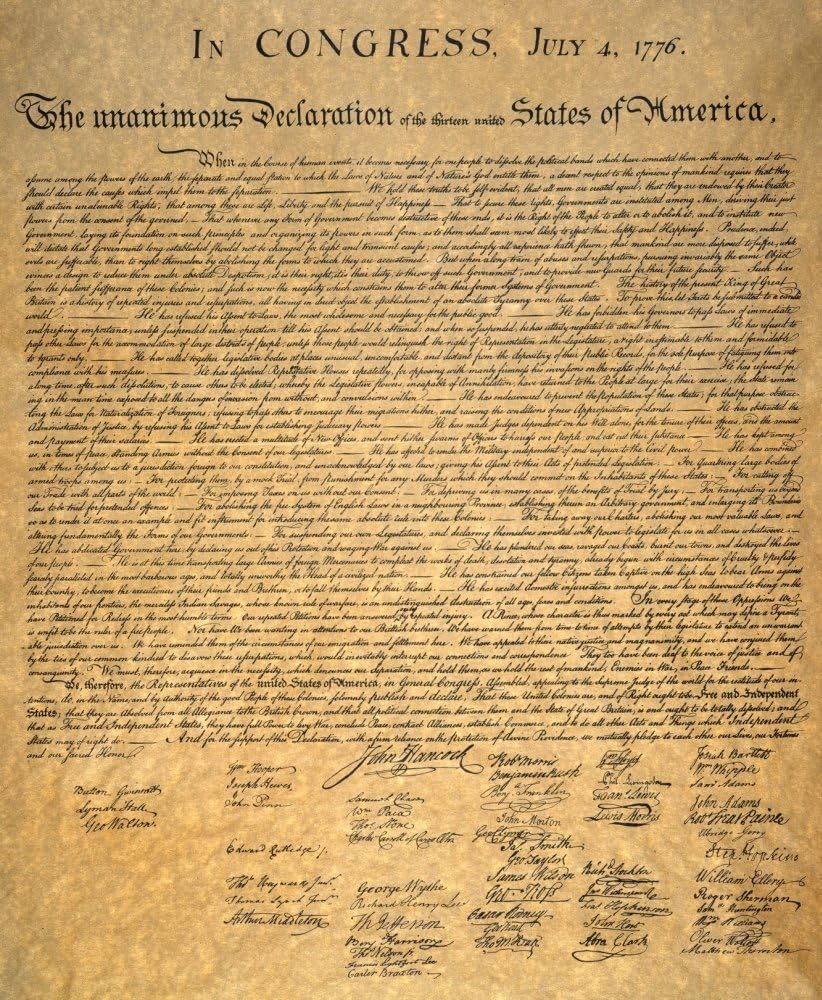 In CONGRESS, July 4, 1776.
The unanimous Declaration of the thirteen united States of America,
When in the Course of human events, it becomes necessary for one people to dissolve the political bands which have connected them with another, and to
assume among the powers of the earth, the separate and equal station to which the Laws of Nature and of Nature's God entitle them, a decent respect to the opinions of mankind requires that they
should declare the causes which impel them to the separation. — We hold these truths to be self-evident, that all men are created equal, that they are endowed by their Creator
with certain unalienable Rights, that among these are Life, Liberty and the pursuit of Happiness — That to secure these rights, Governments are instituted among Men, deriving their just
powers from the consent of the governed, — That whenever any Form of Government becomes destructive of these ends, it is the Right of the People to alter or to abolish it, and to institute new
Government, laying its foundation on such principles and organizing its powers in such form, as to them shall seem most likely to effect their Safety and Happiness. Prudence, indeed,
will dictate that Governments long established should not be changed for light and transient causes; and accordingly all experience hath shewn, that mankind are more disposed to suffer, while
evils are sufferable, than to right themselves by abolishing the forms to which they are accustomed. But when a long train of abuses and usurpations, pursuing invariably the same Object
evinces a design to reduce them under absolute Despotism, it is their right, it is their duty, to throw off such Government, and to provide new Guards for their future security. — Such has
been the patient sufferance of these Colonies; and such is now the necessity which constrains them to alter their former Systems of Government. The history of the present King of Great
Britain is a history of repeated injuries and usurpations, all having in direct object the establishment of an absolute Tyranny over these States. To prove this, let Facts be submitted to a candid
world. — He has refused his Assent to Laws, the most wholesome and necessary for the public good. — He has forbidden his Governors to pass Laws of immediate
and pressing importance, unless suspended in their operation till his Assent should be obtained; and when so suspended, he has utterly neglected to attend to them. — He has refused to
pass other Laws for the accommodation of large districts of people, unless those people would relinquish the right of Representation in the Legislature, a right inestimable to them and formidable
to tyrants only. — He has called together legislative bodies at places unusual, uncomfortable, and distant from the depository of their public Records, for the sole purpose of fatiguing them into
compliance with his measures. — He has dissolved Representative Houses repeatedly, for opposing with manly firmness his invasions on the rights of the people. — He has refused for
a long time, after such dissolutions, to cause others to be elected; whereby the Legislative powers, incapable of Annihilation, have returned to the People at large for their exercise; the State remain-
ing in the mean time exposed to all the dangers of invasion from without, and convulsions within. — He has endeavoured to prevent the population of these States; for that purpose obstruc-
ting the Laws for Naturalization of Foreigners; refusing to pass others to encourage their migrations hither, and raising the conditions of new Appropriations of Lands. — He has obstructed the
Administration of Justice, by refusing his Assent to Laws for establishing Judiciary powers. — He has made Judges dependent on his Will alone, for the tenure of their offices, and the amount
and payment of their salaries. — He has erected a multitude of New Offices, and sent hither swarms of Officers to harrass our people, and eat out their substance. — He has kept among
us, in times of peace, Standing Armies without the Consent of our legislatures. — He has affected to render the Military independent of and superior to the Civil power. — He has combined
with others to subject us to a jurisdiction foreign to our constitution, and unacknowledged by our laws; giving his Assent to their Acts of pretended Legislation: — For Quartering large bodies of
armed troops among us: — For protecting them, by a mock Trial, from punishment for any Murders which they should commit on the Inhabitants of these States: — For cutting off
our Trade with all parts of the world: — For imposing Taxes on us without our Consent: — For depriving us in many cases, of the benefits of Trial by Jury: — For transporting us beyond
Seas to be tried for pretended offences — For abolishing the free System of English Laws in a neighbouring Province, establishing therein an Arbitrary government, and enlarging its Boundaries
so as to render it at once an example and fit instrument for introducing the same absolute rule into these Colonies: — For taking away our Charters, abolishing our most valuable Laws, and
altering fundamentally the Forms of our Governments: — For suspending our own Legislatures, and declaring themselves invested with power to legislate for us in all cases whatsoever. —
He has abdicated Government here, by declaring us out of his Protection and waging War against us. — He has plundered our seas, ravaged our Coasts, burnt our towns, and destroyed the lives
of our people. — He is at this time transporting large Armies of foreign Mercenaries to compleat the works of death, desolation and tyranny, already begun with circumstances of Cruelty & perfidy
scarcely paralleled in the most barbarous ages, and totally unworthy the Head of a civilized nation. — He has constrained our fellow Citizens taken Captive on the high Seas to bear Arms against
their Country, to become the executioners of their friends and Brethren, or to fall themselves by their Hands. — He has excited domestic insurrections amongst us, and has endeavoured to bring on the
inhabitants of our frontiers, the merciless Indian Savages, whose known rule of warfare, is an undistinguished destruction of all ages, sexes and conditions. In every stage of these Oppressions We
have Petitioned for Redress in the most humble terms: Our repeated Petitions have been answered by repeated injury. A Prince, whose character is thus marked by every act which may define a Tyrant,
is unfit to be the ruler of a free people. Nor have We been wanting in attentions to our Brittish brethren. We have warned them from time to time of attempts by their legislature to extend an unwarrant-
able jurisdiction over us. We have reminded them of the circumstances of our emigration and settlement here. We have appealed to their native justice and magnanimity, and we have conjured them
by the ties of our common kindred to disavow these usurpations, which, would inevitably interrupt our connections and correspondence. They too have been deaf to the voice of justice and of
consanguinity. We must, therefore, acquiesce in the necessity, which denounces our Separation, and hold them, as we hold the rest of mankind, Enemies in War, in Peace Friends. —
We, therefore, the Representatives of the united States of America, in General Congress, Assembled, appealing to the Supreme Judge of the world for the rectitude of our in-
tentions, do, in the Name, and by Authority of the good People of these Colonies, solemnly publish and declare, That these United Colonies are, and of Right ought to be Free and Independent
States; that they are Absolved from all Allegiance to the British Crown, and that all political connection between them and the State of Great Britain, is and ought to be totally dissolved; and
that as Free and Independent States, they have full Power to levy War, conclude Peace, contract Alliances, establish Commerce, and to do all other Acts and Things which Independent
States may of right do. — And for the support of this Declaration, with a firm reliance on the protection of divine Providence, we mutually pledge to each other our Lives, our Fortunes
and our sacred Honor.
John Hancock
Button Gwinnett
Lyman Hall
Geo Walton.
Wm Hooper
Joseph Hewes,
John Penn
Edward Rutledge /.
Thos Heyward Junr.
Thomas Lynch Junr.
Arthur Middleton
Samuel Chase
Wm Paca
Thos Stone
Charles Carroll of Carrollton
George Wythe
Richard Henry Lee
Th Jefferson
Benj Harrison
Thos Nelson jr.
Francis Lightfoot Lee
Carter Braxton
Robt Morris
Benjamin Rush
Benj. Franklin
John Morton
Geo Clymer
Jas. Smith
Geo. Taylor
James Wilson
Geo. Ross
Caesar Rodney
Geo Read
Tho M:Kean
Wm Floyd
Phil. Livingston
Frans. Lewis
Lewis Morris
Richd. Stockton
Jno Witherspoon
Fras. Hopkinson
John Hart
Abra Clark
Josiah Bartlett
Wm Whipple
Saml Adams
John Adams
Robt Treat Paine
Elbridge Gerry
Step. Hopkins
William Ellery
Roger Sherman
Saml Huntington
Wm Williams
Oliver Wolcott
Matthew Thornton